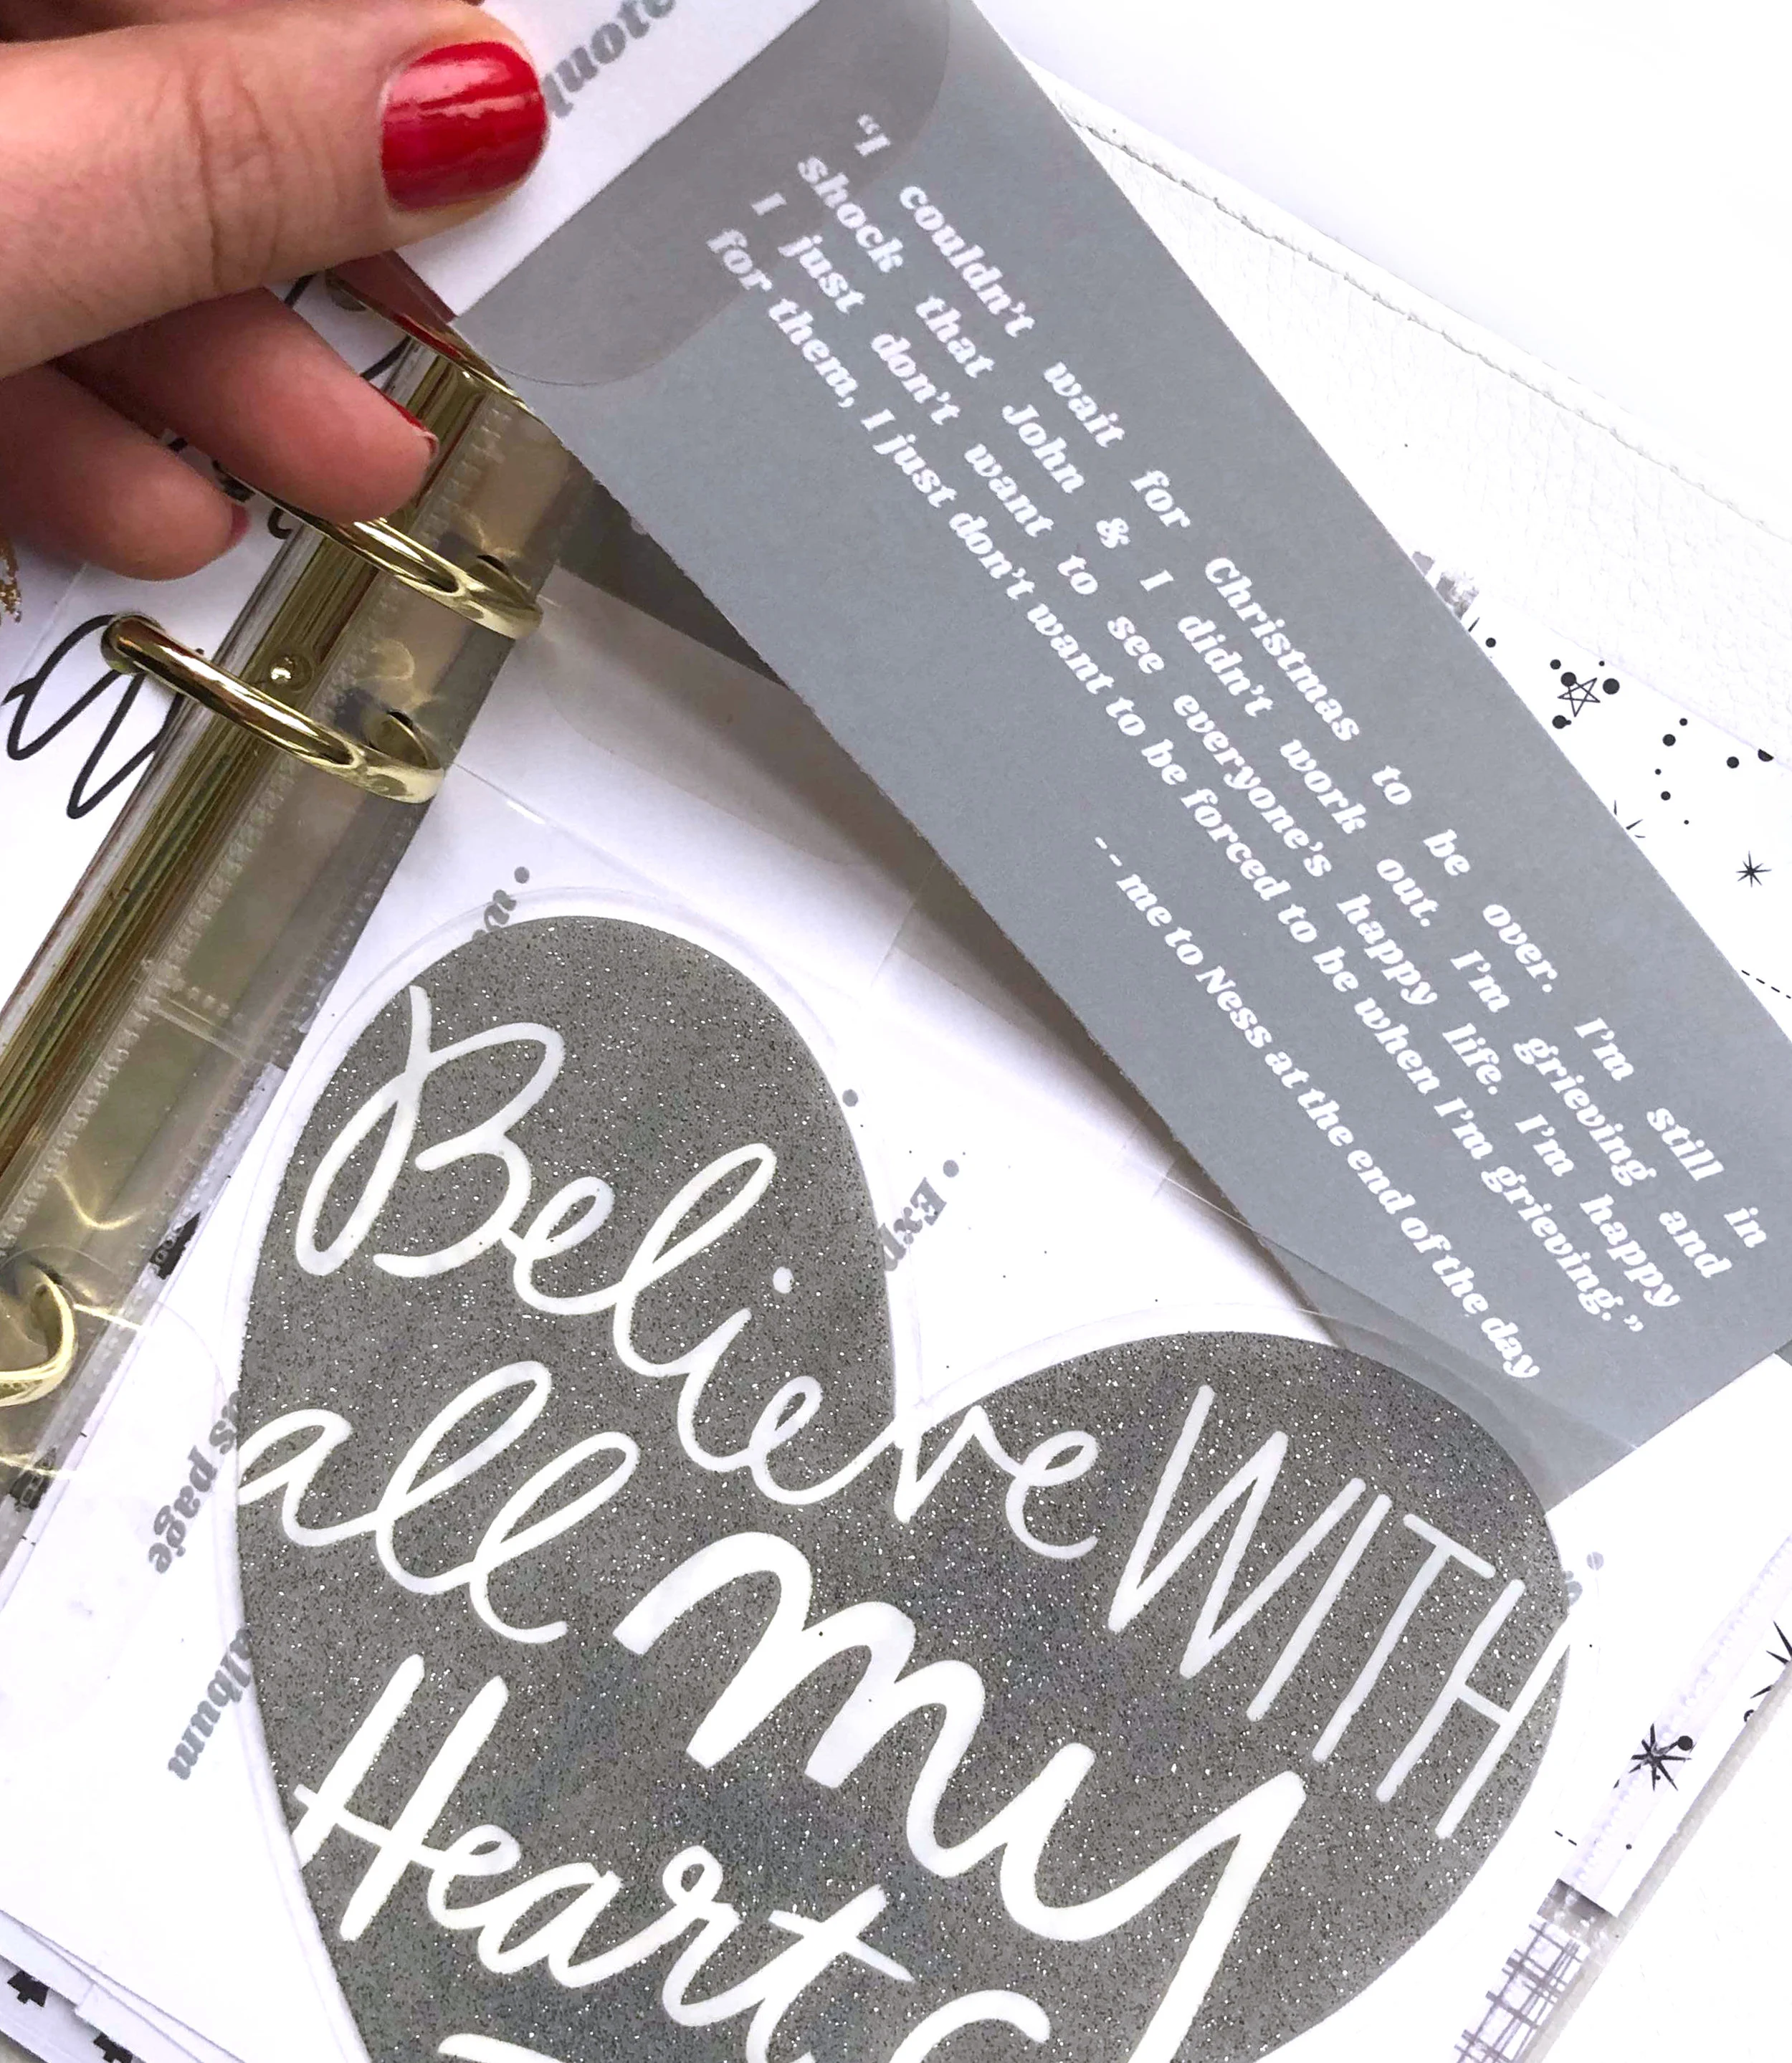 quote
“I couldn’t wait for Christmas to be over. I’m still in
shock that John & I didn’t work out. I’m grieving and
I just don’t want to see everyone’s happy life. I’m happy
for them, I just don’t want to be forced to be when I’m grieving.”
-- me to Ness at the end of the day
Believe WITH
all my
Heart
page